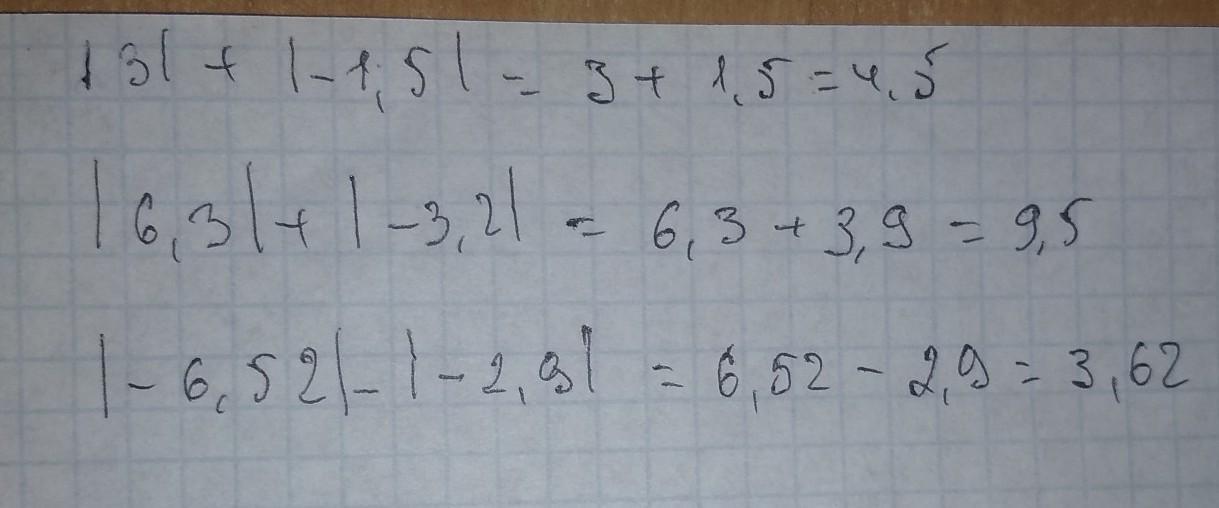 |3| + |-1,5| = 3 + 1,5 = 4,5
|6,3| + |-3,2| = 6,3 + 3,9 = 9,5
|-6,52| - |-2,9| = 6,52 - 2,9 = 3,62